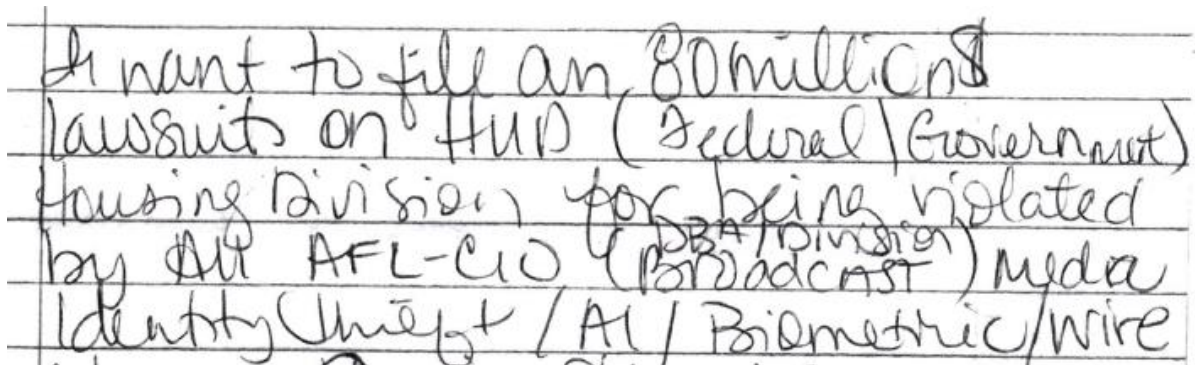 I want to file an 80 million$
lawsuits on HUD (Federal\Government)
Housing Division for being violated
DBA/Division
by All AFL-CIO (Broadcast) media
Identity Thieft / AI / Biometric/Wire